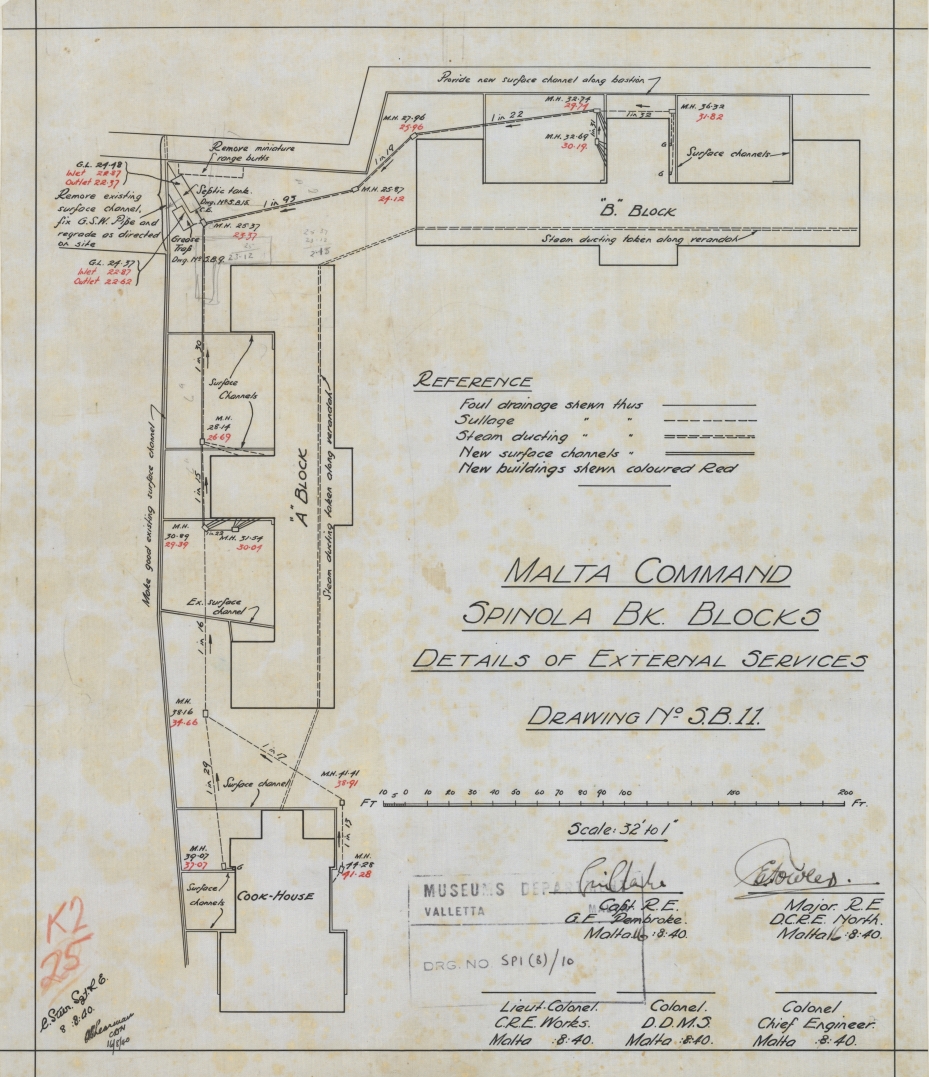 Provide new surface channel along bastion
M.H. 32.74
29.74
M.H. 36.32
31.82
M.H. 27.96
25.96
1 in 22
1 in 32
M.H. 32.69
30.19
6
6
Surface channels
1 in 19
Remove miniature
range butts
G.L. 24.48
Inlet 22.87
Outlet 22.37
Septic tank.
Remove existing
surface channel,
fix G.S.W. Pipe and
regrade as directed
on site
M.H. 25.87
24.12
1 in 93
M.H. 25.37
23.37
"B" BLOCK
Steam ducting taken along verandah
Grease
Trap
Drg. Nº S.B.9.
G.L. 24.37
Inlet 22.87
Outlet 22.62
1 in 30
Surface
Channels
M.H.
28.14
26.69
Make good existing surface channel
1 in 15
"A" BLOCK
Steam ducting taken along verandah
M.H.
30.89
29.39
1 in 22
M.H. 31.54
30.04
Ex. surface
channel
1 in 16
M.H.
38.16
34.66
1 in 17
1 in 29
M.H. 41.41
38.91
Surface channel
1 in 13
M.H.
39.07
37.07
6
M.H.
44.28
41.28
Surface
channels
COOK-HOUSE
REFERENCE
Foul drainage shewn thus
Sullage " "
Steam ducting " "
New surface channels "
New buildings shewn coloured Red
MALTA COMMAND
SPINOLA BK. BLOCKS
DETAILS OF EXTERNAL SERVICES
DRAWING Nº S.B.11.
FT 10 5 0 10 20 30 40 50 60 70 80 90 100 150 200 FT.
Scale: 32' to 1"
MUSEUMS
VALLETTA
DRG. NO. SPI(8)/10
Capt. R.E.
G.E. Pembroke.
Malta :8:40.
Major. R.E
D.C.R.E. North.
Malta :8:40.
Lieut-Colonel.
C.R.E. Works.
Malta :8:40.
Colonel.
D.D.M.S.
Malta :8:40.
Colonel
Chief Engineer.
Malta :8:40.
K2
25
Sgt. R.E.
8:8:40.